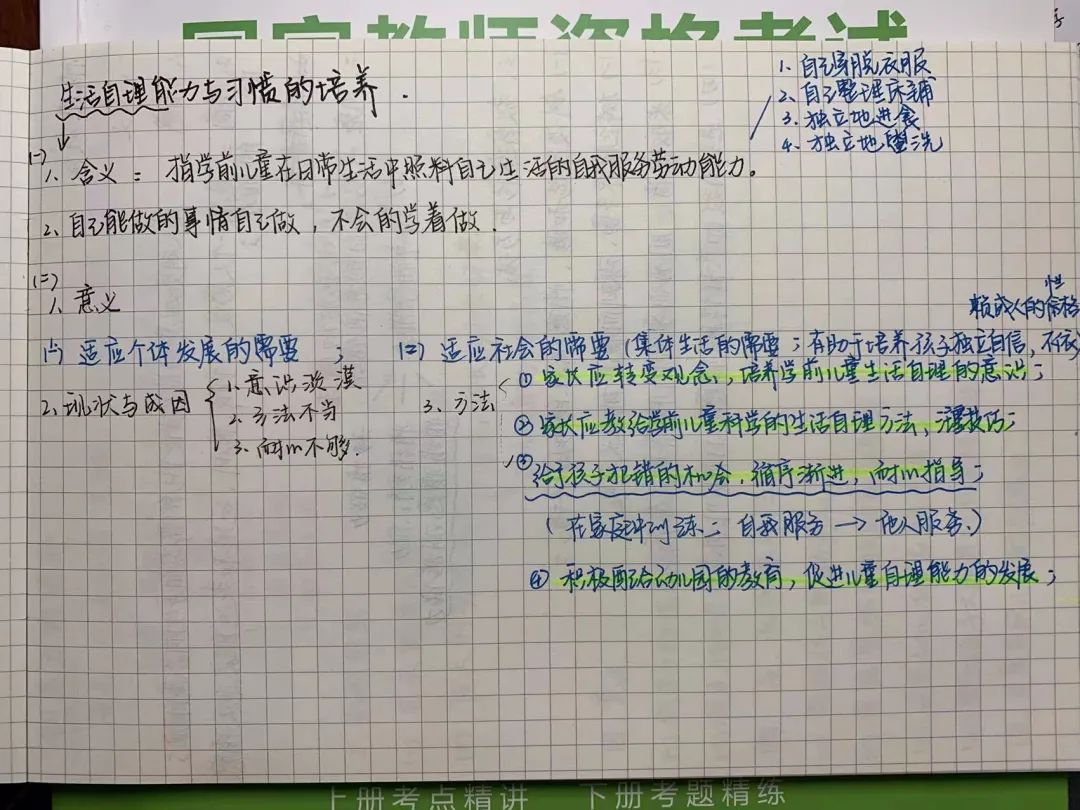 国家教师资格考试
生活自理能力与习惯的培养.
1. 自己穿脱衣服
2. 自己整理床铺
3. 独立地进食
4. 独立地盥洗
(一)
1. 含义：指学前儿童在日常生活中照料自己生活的自我服务劳动能力。
2、自己能做的事情自己做，不会的学着做.
(二)
1. 意义
(一) 适应个体发展的需要；
(二) 适应社会的需要(集体生活的需要；有助于培养孩子独立自信，不依
赖成人的性格
2、现状与成因
1. 意识淡漠
2. 方法不当
3. 耐心不够.
3、方法
① 家长应转变观念，培养学前儿童生活自理的意识；
② 家长应教给学前儿童科学的生活自理方法、技巧；
③ 给予孩子犯错的机会，循序渐进，耐心指导；
(在家庭中训练：自我服务→他人服务.)
④ 积极配合幼儿园的教育，促进儿童自理能力的发展；
上册考点精讲 下册考题精练